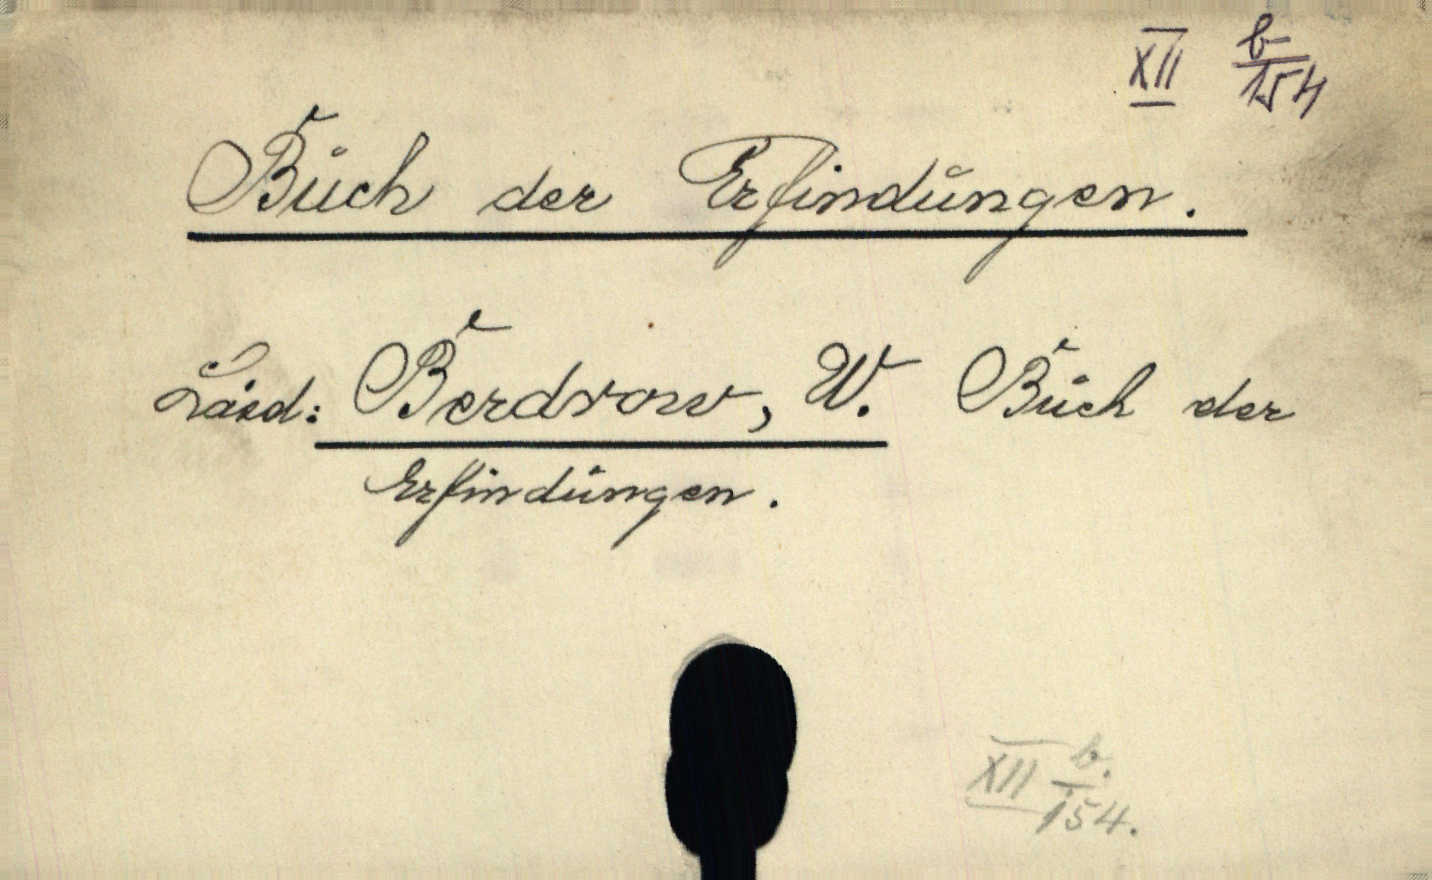 XII b/154
Buch der Erfindungen.
Lásd: Berdrow, W. Buch der
Erfindungen.
XII b./154.